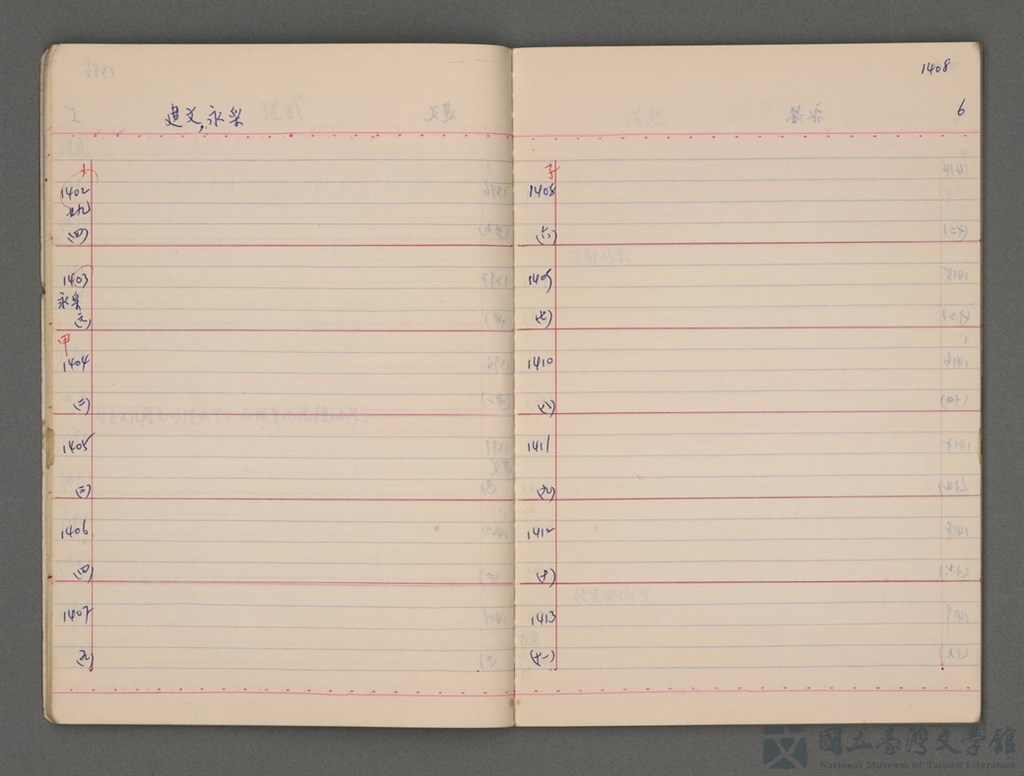 建文,永楽
1402
(四)
1403
永楽
(元)
甲
1404
(二)
1405
(三)
1406
(四)
1407
(五)
1408
6
子
1408
(六)
1409
(七)
1410
(八)
1411
(九)
1412
(十)
1413
(十一)
國立臺灣文學館
National Museum of Taiwan Literature